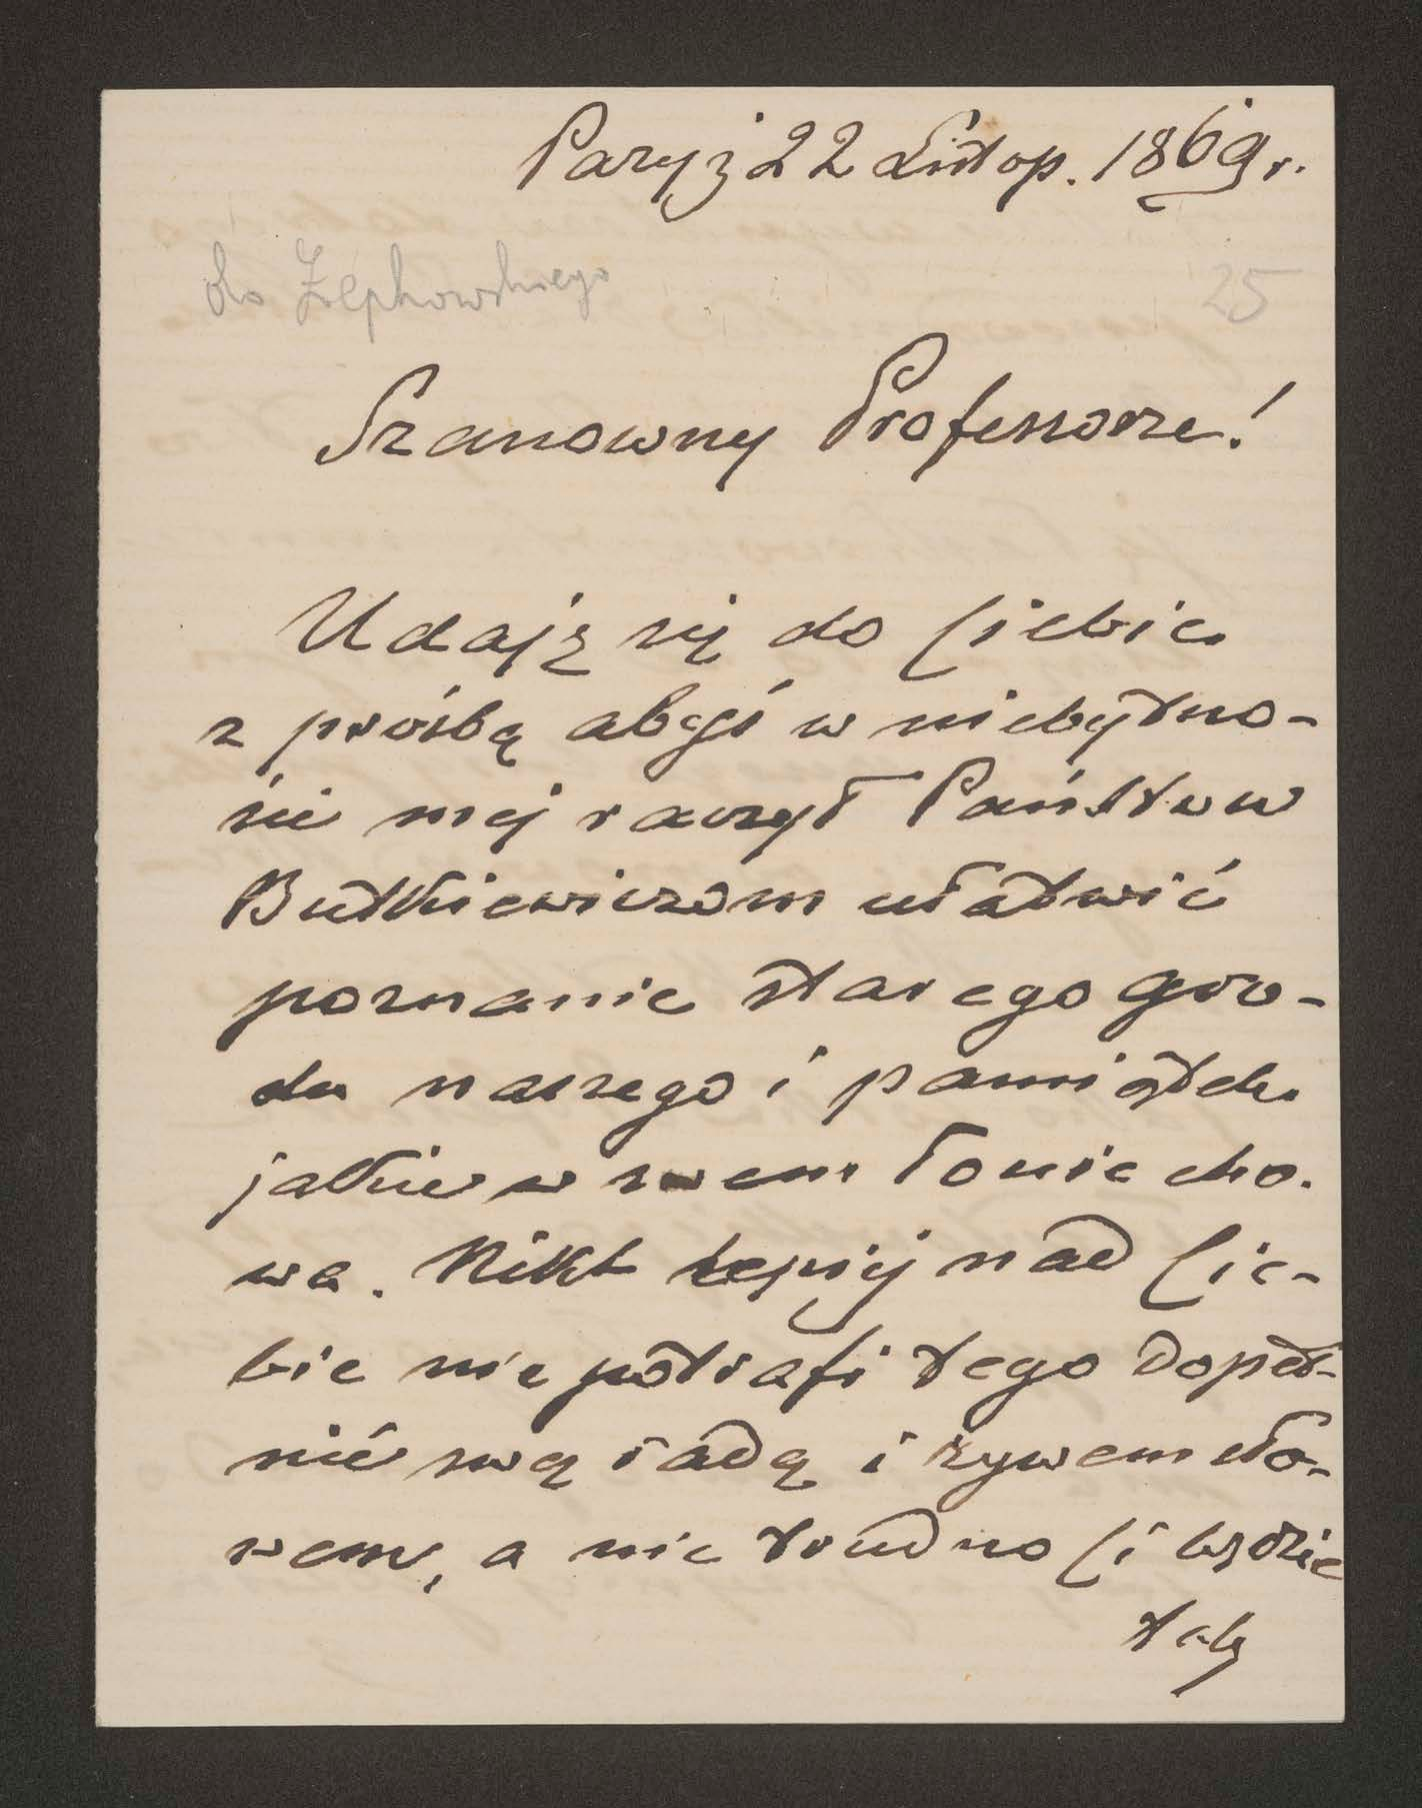 Paryż 22 Listop. 1869 r.
do Łepkowskiego
25
Szanowny Professorze!
Udaję się do Ciebie
z prośbą abyś w niebytno-
ści mej raczył Państwu
Butkiewiczom ułatwić
poznanie starego gro-
du naszego i pamiątek
jakie w swem łonie cho-
wa. Nikt lepiej nad Cie-
bie nie potrafi tego dopeł-
nić swą radą i żywem sło-
wem, a nie trudno Ci będzie